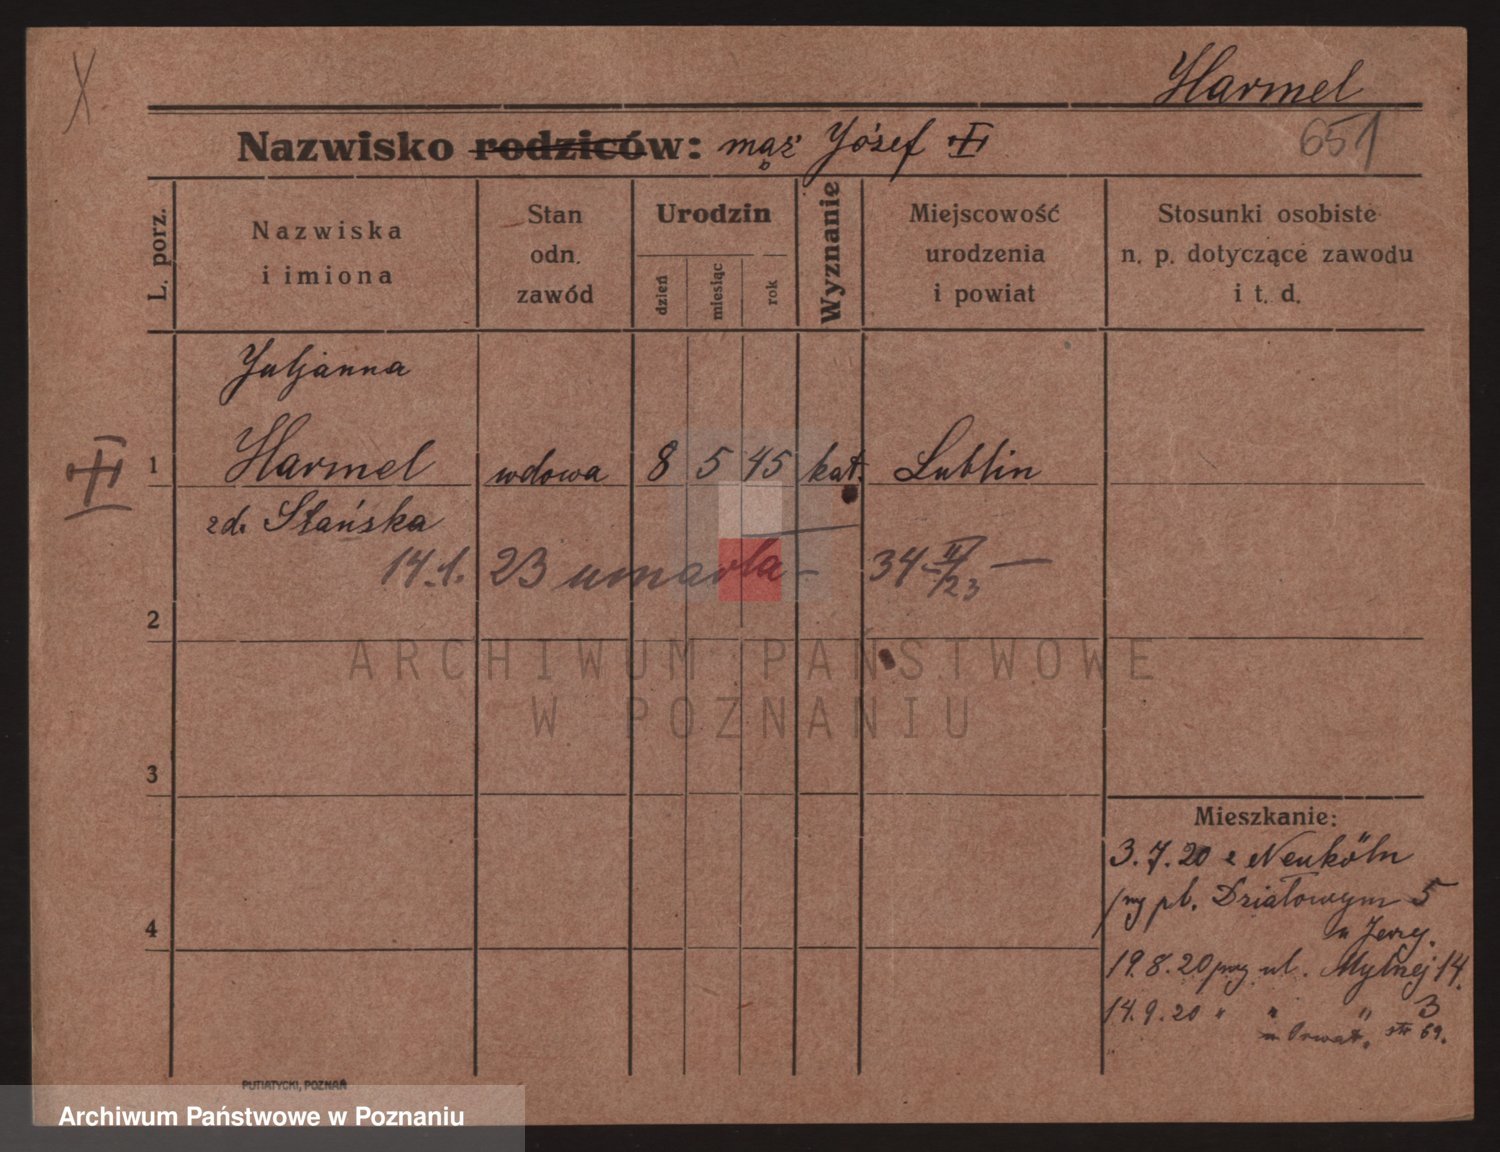 Harmel
Nazwisko rodziców: mąż Józef
651
L. porz.
Nazwiska
i imiona
Stan
odn.
zawód
Urodzin
dzień
miesiąc
rok
Wyznanie
Miejscowość
urodzenia
i powiat
Stosunki osobiste
n. p. dotyczące zawodu
i t. d.
Juljanna
1 Harmel wdowa 8 5 45 kat. Lublin
zd. Stańska
14.1. 23 umarła – 34 – II/23 –
2
3
4
Mieszkanie:
3.7.20 z Neuköln
pl. Działowym 5
u Jerzy.
19.8.20 przy ul. Mylnej 14.
14.9.20 " " " 3
u str 69.
PUTIATYCKI, POZNAŃ
ARCHIWUM PAŃSTWOWE
W POZNANIU
Archiwum Państwowe w Poznaniu